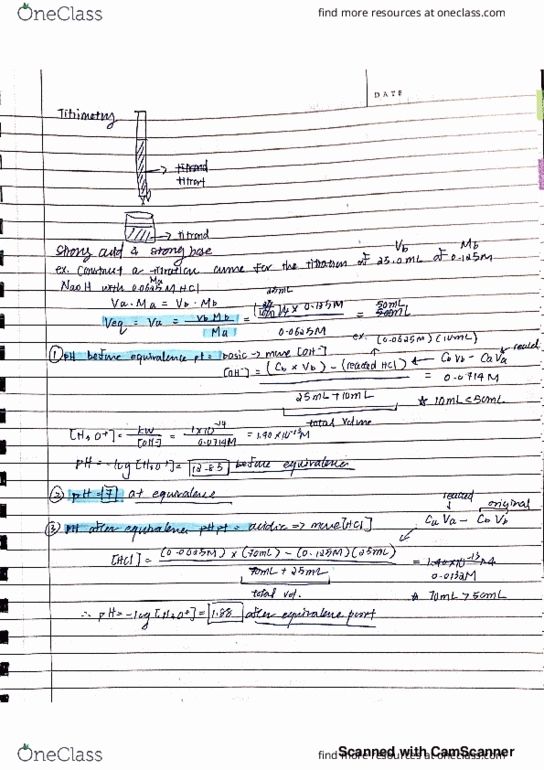 OneClass
find more resources at oneclass.com
DATE
Titrimetry
titrand
titrant
titrand
Strong acid & strong base
Vb Mb
ex. Construct a titration curve for the titration of 25.0mL of 0.125M
Ma
NaOH with 0.0625M HCl
25mL
Va·Ma = Vb·Mb
Veq = Va = Vb Mb / Ma = × 0.125M / 0.0625M = 50mL
ex. (0.0625M)(10mL)
① pH before equivalence pt = basic -> more [OH-]
reacted
[OH-] = (Cb × Vb) - (reacted HCl) / 25mL + 10mL <- CbVb - CaVa
= 0.0714M
total volume
* 10mL < 50mL
[H3O+] = kw / [OH-] = 1×10^-14 / 0.0714M = 1.40 ×10^-13 M
pH = -log [H3O+] = 12.85 before equivalence
② pH = 7 at equivalence
reacted original
③ pH after equivalence pt = acidic => more [HCl]
CaVa - CbVb
[HCl] = (0.0625M) × (70mL) - (0.125M)(25mL) / 70mL + 25mL = 1.40 ×10^-13
0.0132M
total vol.
* 70mL > 50mL
∴ pH = -log [H3O+] = 1.88 after equivalence point
Scanned with CamScanner
OneClass
find more resources at oneclass.com